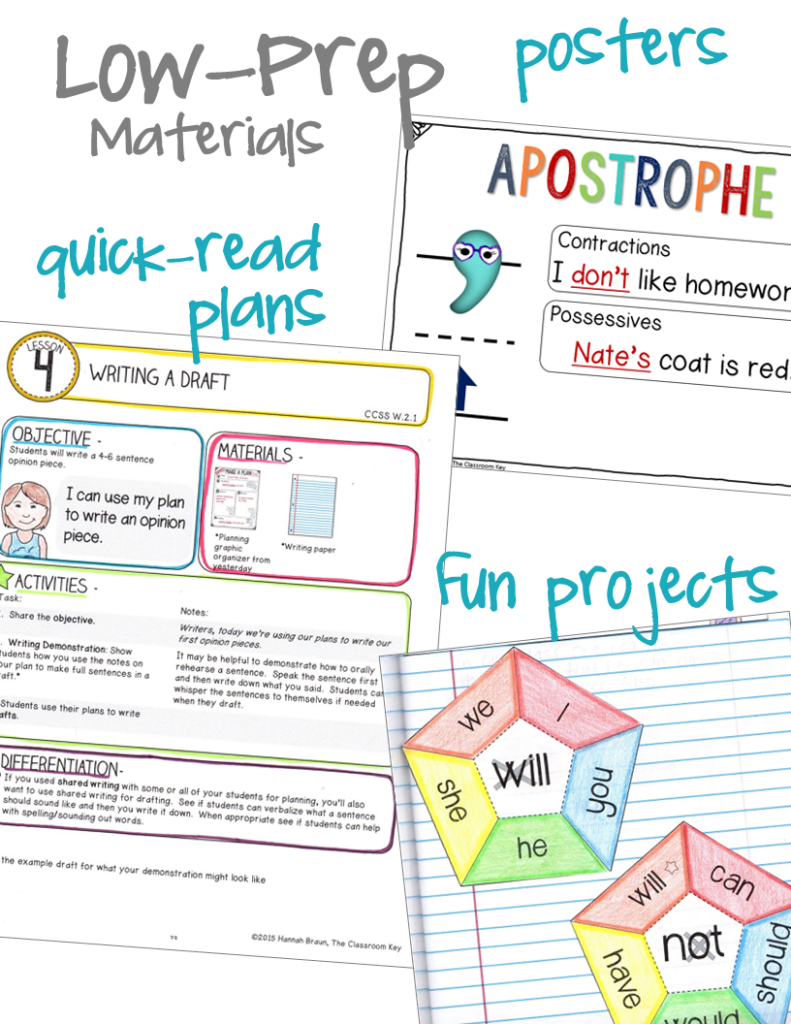 Low-Prep
Materials
posters
quick-read
plans
APOSTROPHE
Contractions
I don't like homewor
Possessives
Nate's coat is red.
The Classroom Key
LESSON
4
WRITING A DRAFT
CCSS W.2.1
OBJECTIVE -
Students will write a 4-6 sentence
opinion piece.
I can use my plan
to write an opinion
piece.
MATERIALS -
MAKE A PLAN
*Planning
graphic
organizer from
yesterday
*Writing paper
ACTIVITIES -
Task:
. Share the objective.
. Writing Demonstration: Show
tudents how you use the notes on
our plan to make full sentences in a
raft.*
Students use their plans to write
afts.
Notes:
Writers, today we're using our plans to write our
first opinion pieces.
It may be helpful to demonstrate how to orally
rehearse a sentence. Speak the sentence first
and then write down what you said. Students can
whisper the sentences to themselves if needed
when they draft.
DIFFERENTIATION-
If you used shared writing with some or all of your students for planning, you'll also
want to use shared writing for drafting. See if students can verbalize what a sentence
should sound like and then you write it down. When appropriate see if students can help
with spelling/sounding out words.
the example draft for what your demonstration might look like
©2015 Hannah Braun, The Classroom Key
fun projects
we
I
will
she
you
he
will
can
not
have
should
would